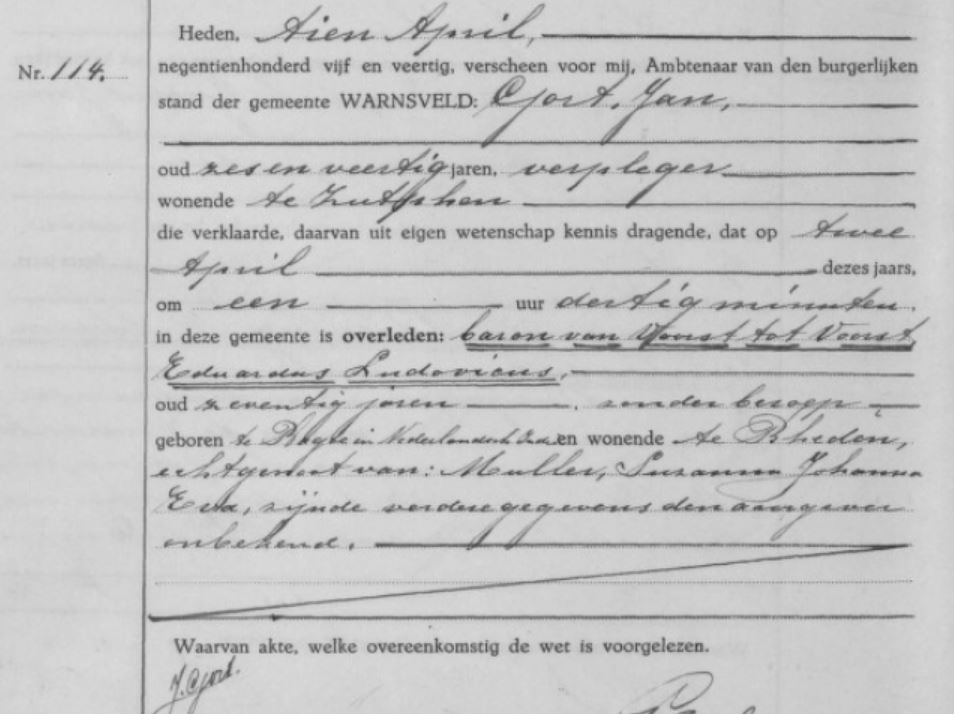 Heden, tien April,
Nr. 114.
negentienhonderd vijf en veertig, verscheen voor mij, Ambtenaar van den burgerlijken
stand der gemeente WARNSVELD: Gjort, Jan,
oud zes en veertig jaren, verpleger
wonende te Zutphen
die verklaarde, daarvan uit eigen wetenschap kennis dragende, dat op twee
April dezes jaars,
om een uur dertig minuten,
in deze gemeente is overleden: baron van Voorst tot Voorst,
Eduardus Ludovicus,
oud zeventig jaren, zonder beroep,
geboren te in Nederlandsch en wonende te Rheden,
echtgenoot van: Muller, Suzanna Johanna
Eva, zijnde verdere gegevens den aangever
onbekend.
Waarvan akte, welke overeenkomstig de wet is voorgelezen.
J. Gjort.